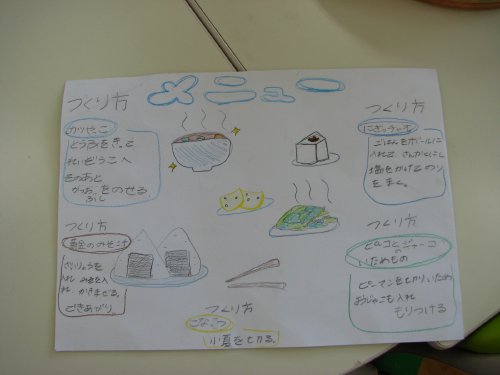 メニュー
つくり方
カツやっこ
とうふをきって
れいぞうこへ
そのあと
かつおぶしをのせる
つくり方
ごはんをボールに
入れて さんかくにし
塩をかけて のり
をまく。
つくり方
黄金のみそ汁
ざいりょうを
入れ みそを入
れ かきまぜる。
できあがり。
つくり方
ピーマンを切り、いため
おじゃこも入れ
もりつける
いためもの
つくり方
こなつ
小夏を切る。